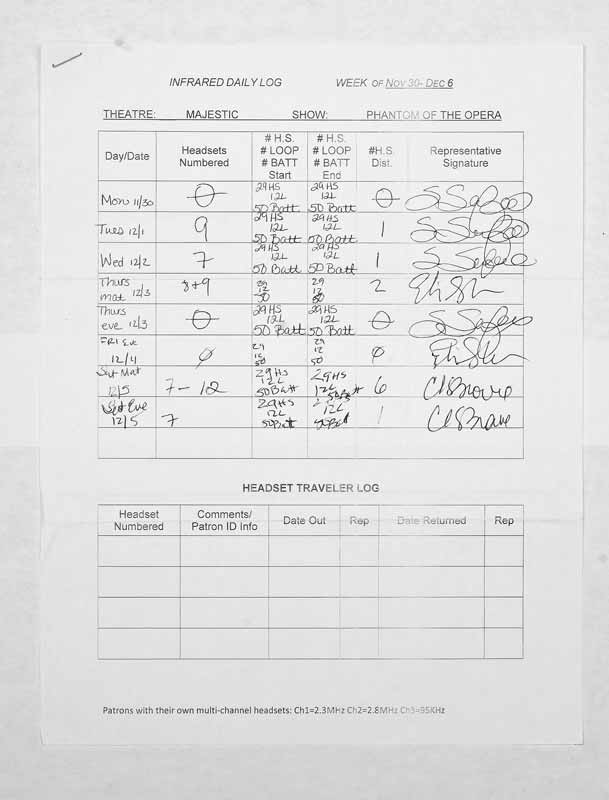 INFRARED DAILY LOG WEEK OF NOV 30- DEC 6
THEATRE: MAJESTIC SHOW: PHANTOM OF THE OPERA
Day/Date
Headsets
Numbered
# H.S.
# LOOP
# BATT
Start
# H.S.
# LOOP
# BATT
End
#H.S.
Dist.
Representative
Signature
Mon 11/30
0
29 HS
12L
50 Batt
29 HS
12L
50 Batt
0
Tues 12/1
9
29 HS
12L
50 Batt
29 HS
12L
50 Batt
1
Wed 12/2
7
29 HS
12L
50 Batt
29 HS
12L
50 Batt
1
Thurs
mat 12/3
8+9
29
12
50
29
12
50
2
Thurs
eve 12/3
0
29 HS
12L
50 Batt
29 HS
12L
50 Batt
0
FRI Eve
12/4
0
29
12
50
29
12
50
0
Sat Mat
12/5
7-12
29 HS
12L
50 Batt
29 HS
12L
50 Batt
6
Sat Eve
12/5
7
29 HS
12L
50 Batt
12L
50 Batt
1
HEADSET TRAVELER LOG
Headset
Numbered
Comments/
Patron ID Info
Date Out
Rep
Date Returned
Rep
Patrons with their own multi-channel headsets: Ch1=2.3MHz Ch2=2.8MHz Ch3=95KHz